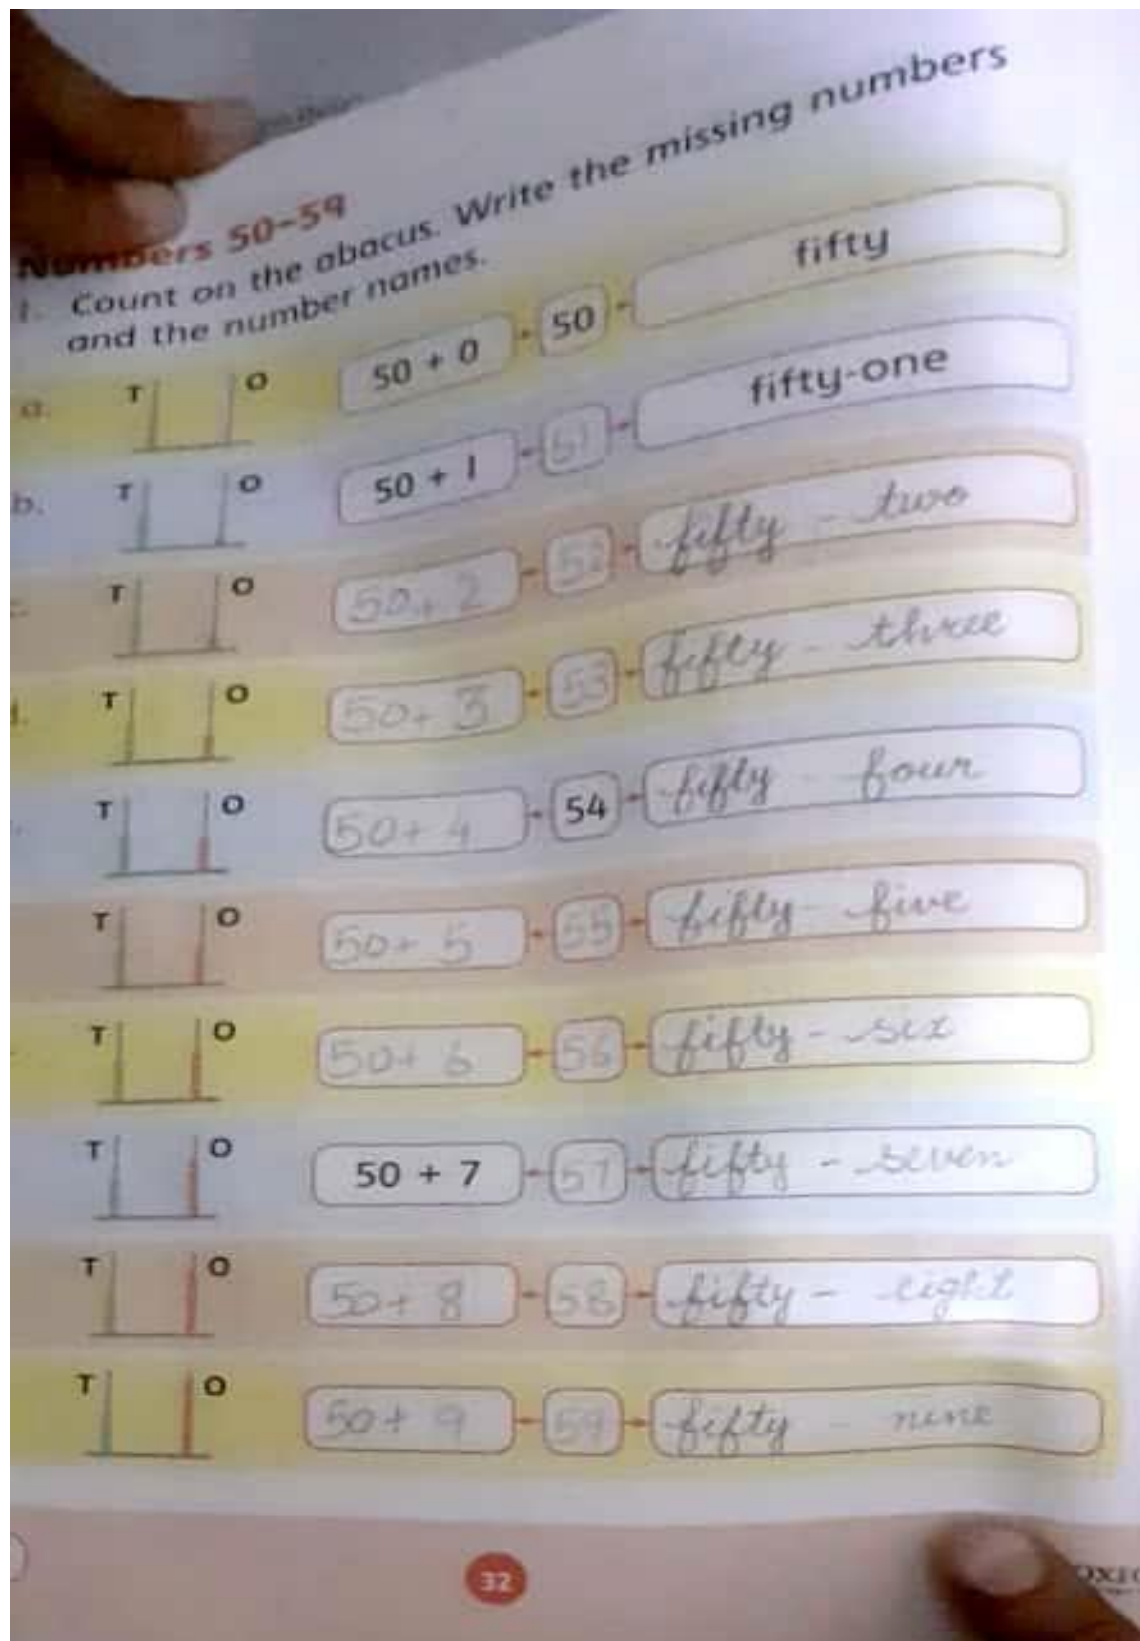 Numbers 50–59
1. Count on the abacus. Write the missing numbers
and the number names.
a. T O 50 + 0 50 fifty
b. T O 50 + 1 51 fifty-one
T O 50 + 2 52 fifty - two
T O 50 + 3 53 fifty - three
T O 50 + 4 54 fifty - four
T O 50 + 5 55 fifty - five
T O 50 + 6 56 fifty - six
T O 50 + 7 57 fifty - seven
T O 50 + 8 58 fifty - eight
T O 50 + 9 59 fifty - nine
32